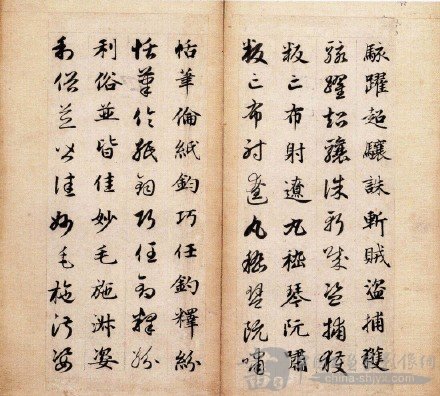 駭躍超驤誅斬賊盜捕獲
駭躍超驤誅斬賊盜捕獲
叛亡布射遼丸嵇琴阮嘯
叛亡布射遼丸嵇琴阮嘯
恬筆倫紙鈞巧任釣釋紛
恬筆倫紙鈞巧任釣釋紛
利俗並皆佳妙毛施淑姿
利俗並皆佳妙毛施淑姿
china-shjyx.com